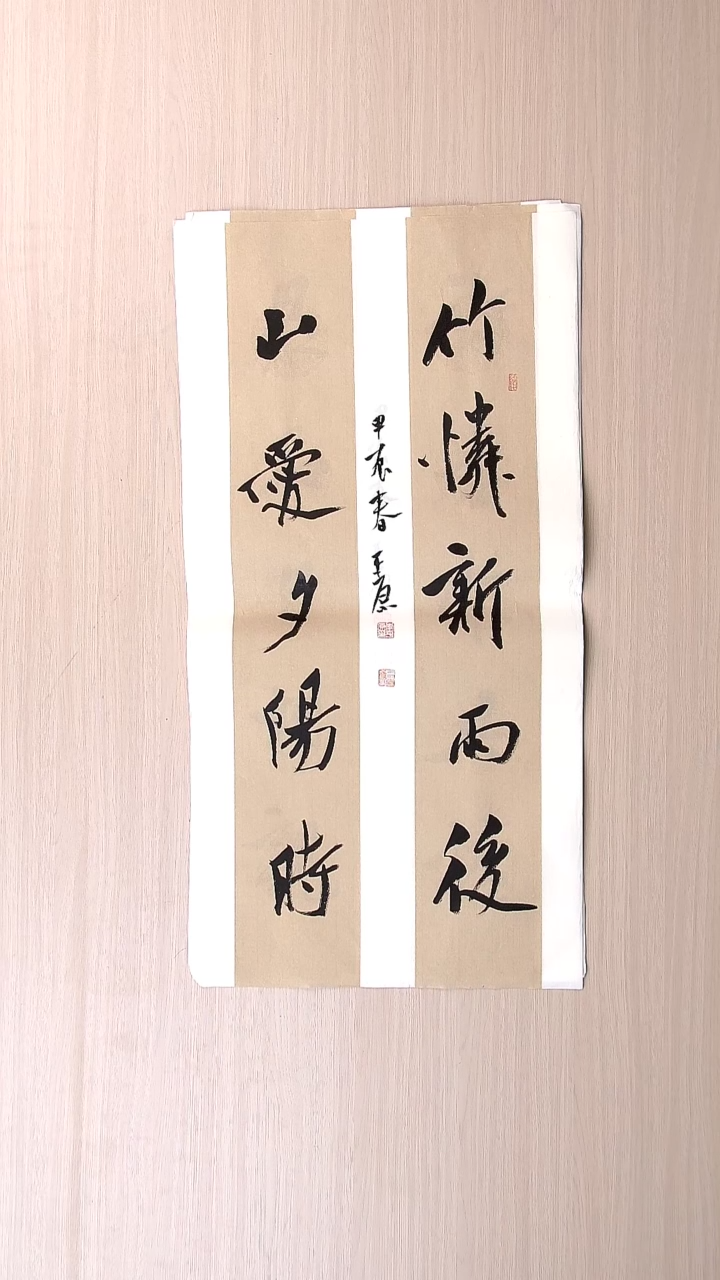 竹憐新雨後
山愛夕陽時
甲辰春 王